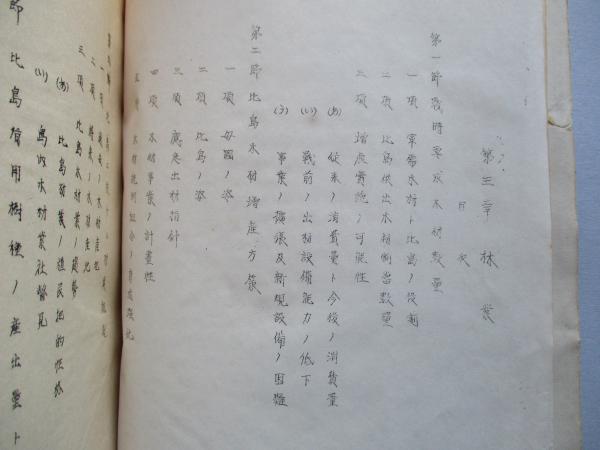 第三章 林業
目次
第一節 戦時要求木材数量
一項 軍需木材ト比島ノ役割
二項 比島供出木材割当数量
三項 増産実施ノ可能性
(あ) 従来ノ消費量ト今後ノ消費量
(い) 戦前ノ出材設備能力ノ低下
(う) 事業ノ擴張及新規設備ノ困難
第二節 比島木材増産方策
一項 母國ノ姿
二項 比島ノ姿
三項 應急出材指針
四項 木材事業ノ計畫性
三項 比島木材業ノ趨勢
(あ) 比島材業ノ植民地的性格
(い) 島内木材業社
節 比島有用樹種ノ産出量ト